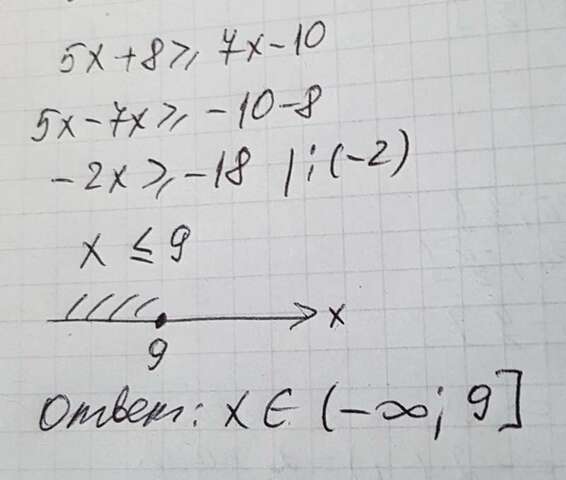 5x+8⩾7x-10
5x-7x⩾-10-8
-2x⩾-18 |:(-2)
x≤9
x
9
Ответ: x∈(-∞; 9]